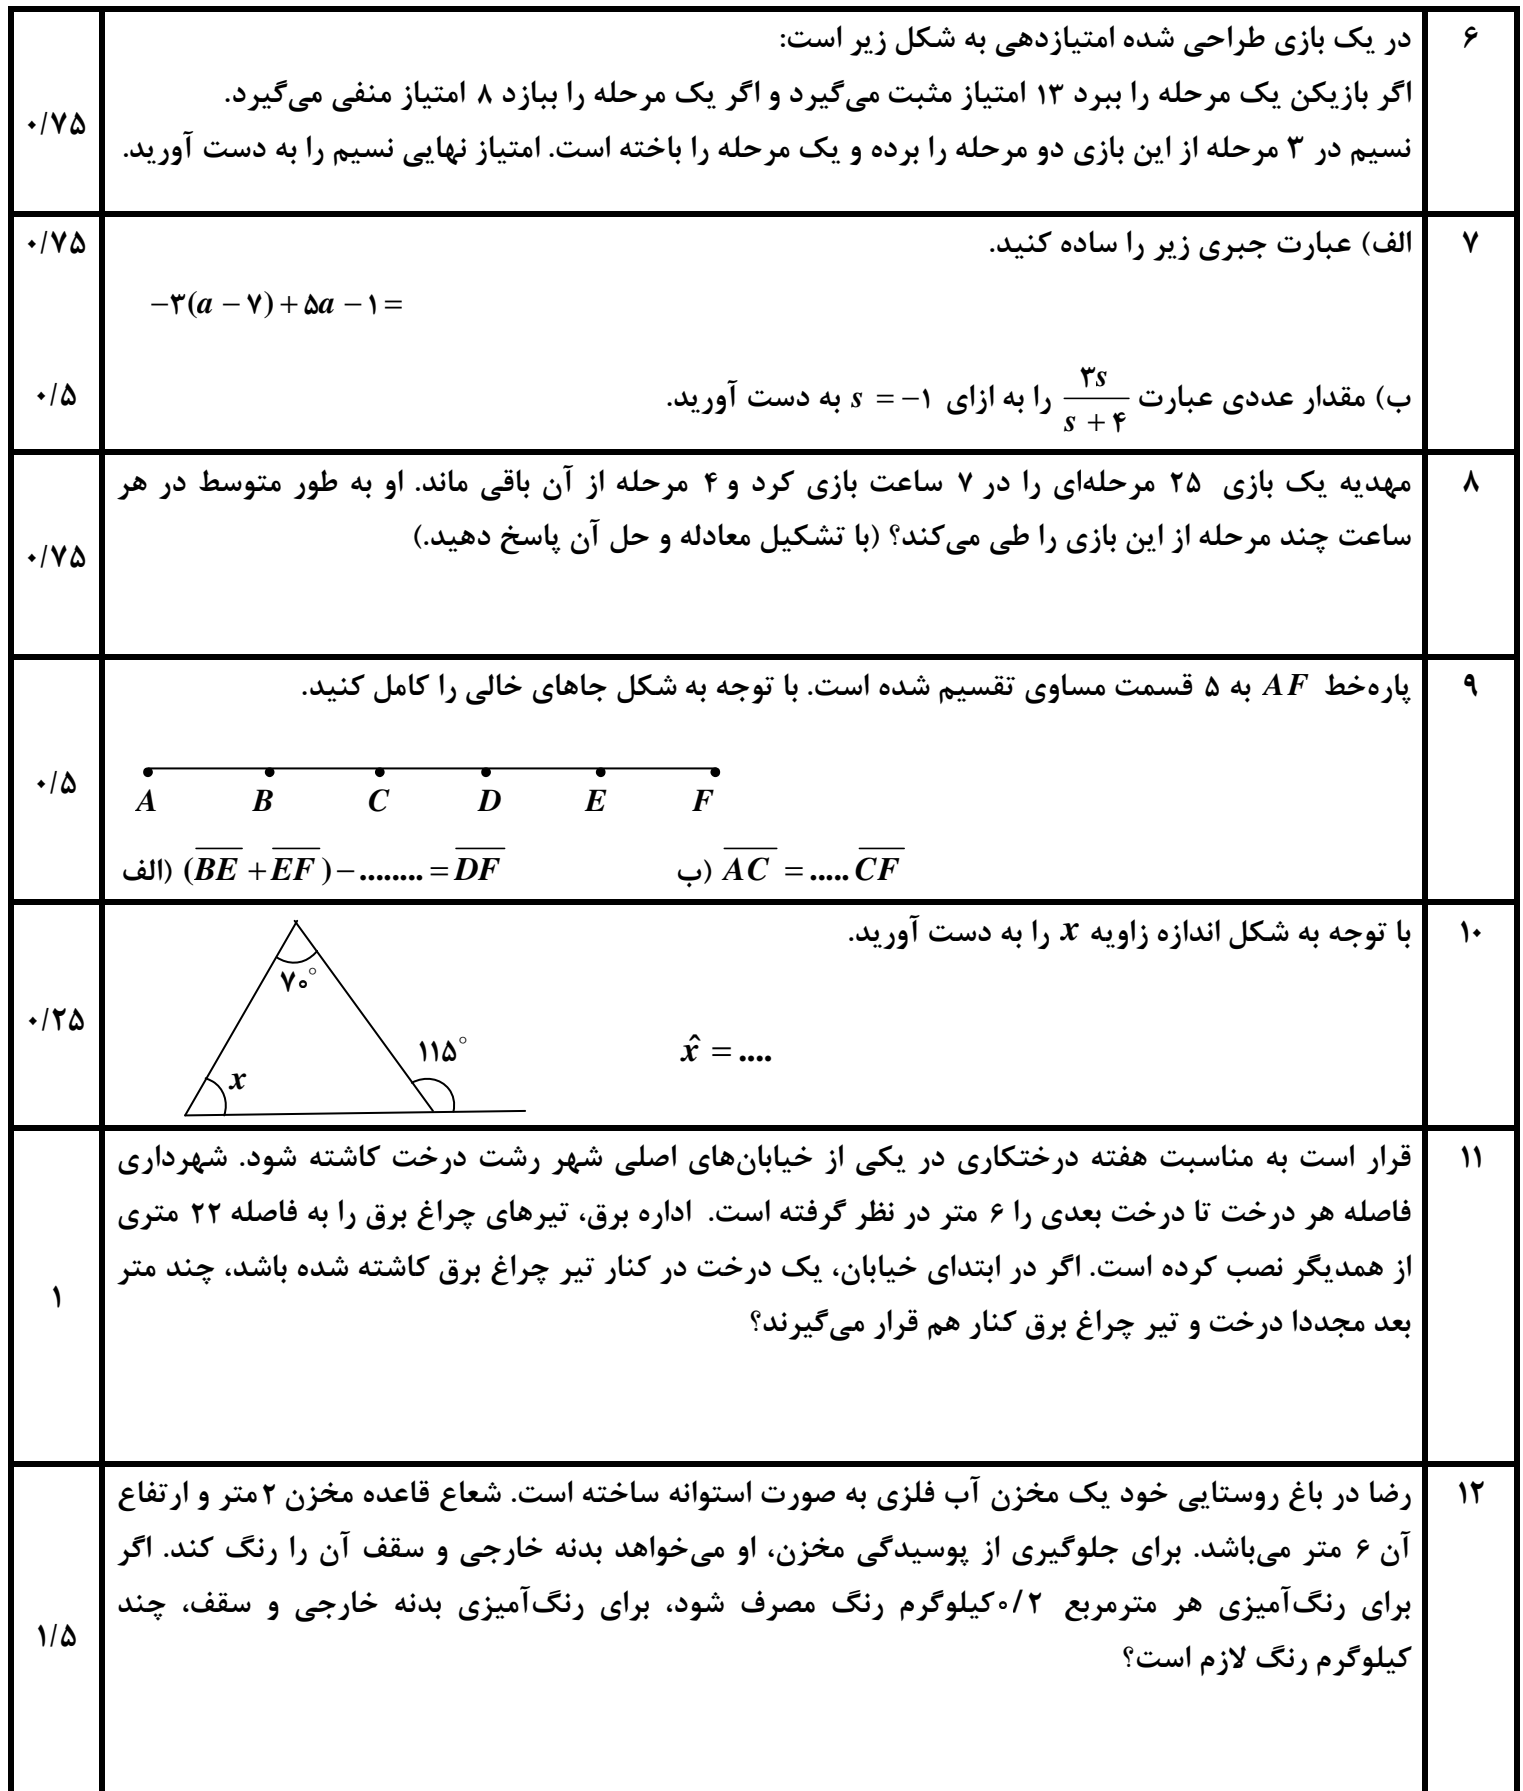 ۶
در یک بازی طراحی شده امتیازدهی به شکل زیر است:
اگر بازیکن یک مرحله را ببرد ۱۳ امتیاز مثبت می‌گیرد و اگر یک مرحله را ببازد ۸ امتیاز منفی می‌گیرد.
نسیم در ۳ مرحله از این بازی دو مرحله را برده و یک مرحله را باخته است. امتیاز نهایی نسیم را به دست آورید.
۰/۷۵
۷
الف) عبارت جبری زیر را ساده کنید.
۰/۷۵
−۳(a − ۷) + ۵a − ۱ =
ب) مقدار عددی عبارت ۳s / (s + ۴) را به ازای s = −۱ به دست آورید.
۰/۵
۸
مهدیه یک بازی ۲۵ مرحله‌ای را در ۷ ساعت بازی کرد و ۴ مرحله از آن باقی ماند. او به طور متوسط در هر
ساعت چند مرحله از این بازی را طی می‌کند؟ (با تشکیل معادله و حل آن پاسخ دهید.)
۰/۷۵
۹
پاره‌خط AF به ۵ قسمت مساوی تقسیم شده است. با توجه به شکل جاهای خالی را کامل کنید.
۰/۵
A B C D E F
الف) (BE + EF) − ........ = DF
ب) AC = ..... CF
۱۰
با توجه به شکل اندازه زاویه x را به دست آورید.
۷۰°
۱۱۵°
x
x̂ = ....
۰/۲۵
۱۱
قرار است به مناسبت هفته درختکاری در یکی از خیابان‌های اصلی شهر رشت درخت کاشته شود. شهرداری
فاصله هر درخت تا درخت بعدی را ۶ متر در نظر گرفته است. اداره برق، تیرهای چراغ برق را به فاصله ۲۲ متری
از همدیگر نصب کرده است. اگر در ابتدای خیابان، یک درخت در کنار تیر چراغ برق کاشته شده باشد، چند متر
بعد مجددا درخت و تیر چراغ برق کنار هم قرار می‌گیرند؟
۱
۱۲
رضا در باغ روستایی خود یک مخزن آب فلزی به صورت استوانه ساخته است. شعاع قاعده مخزن ۲ متر و ارتفاع
آن ۶ متر می‌باشد. برای جلوگیری از پوسیدگی مخزن، او می‌خواهد بدنه خارجی و سقف آن را رنگ کند. اگر
برای رنگ‌آمیزی هر مترمربع ۰/۲ کیلوگرم رنگ مصرف شود، برای رنگ‌آمیزی بدنه خارجی و سقف، چند
کیلوگرم رنگ لازم است؟
۱/۵